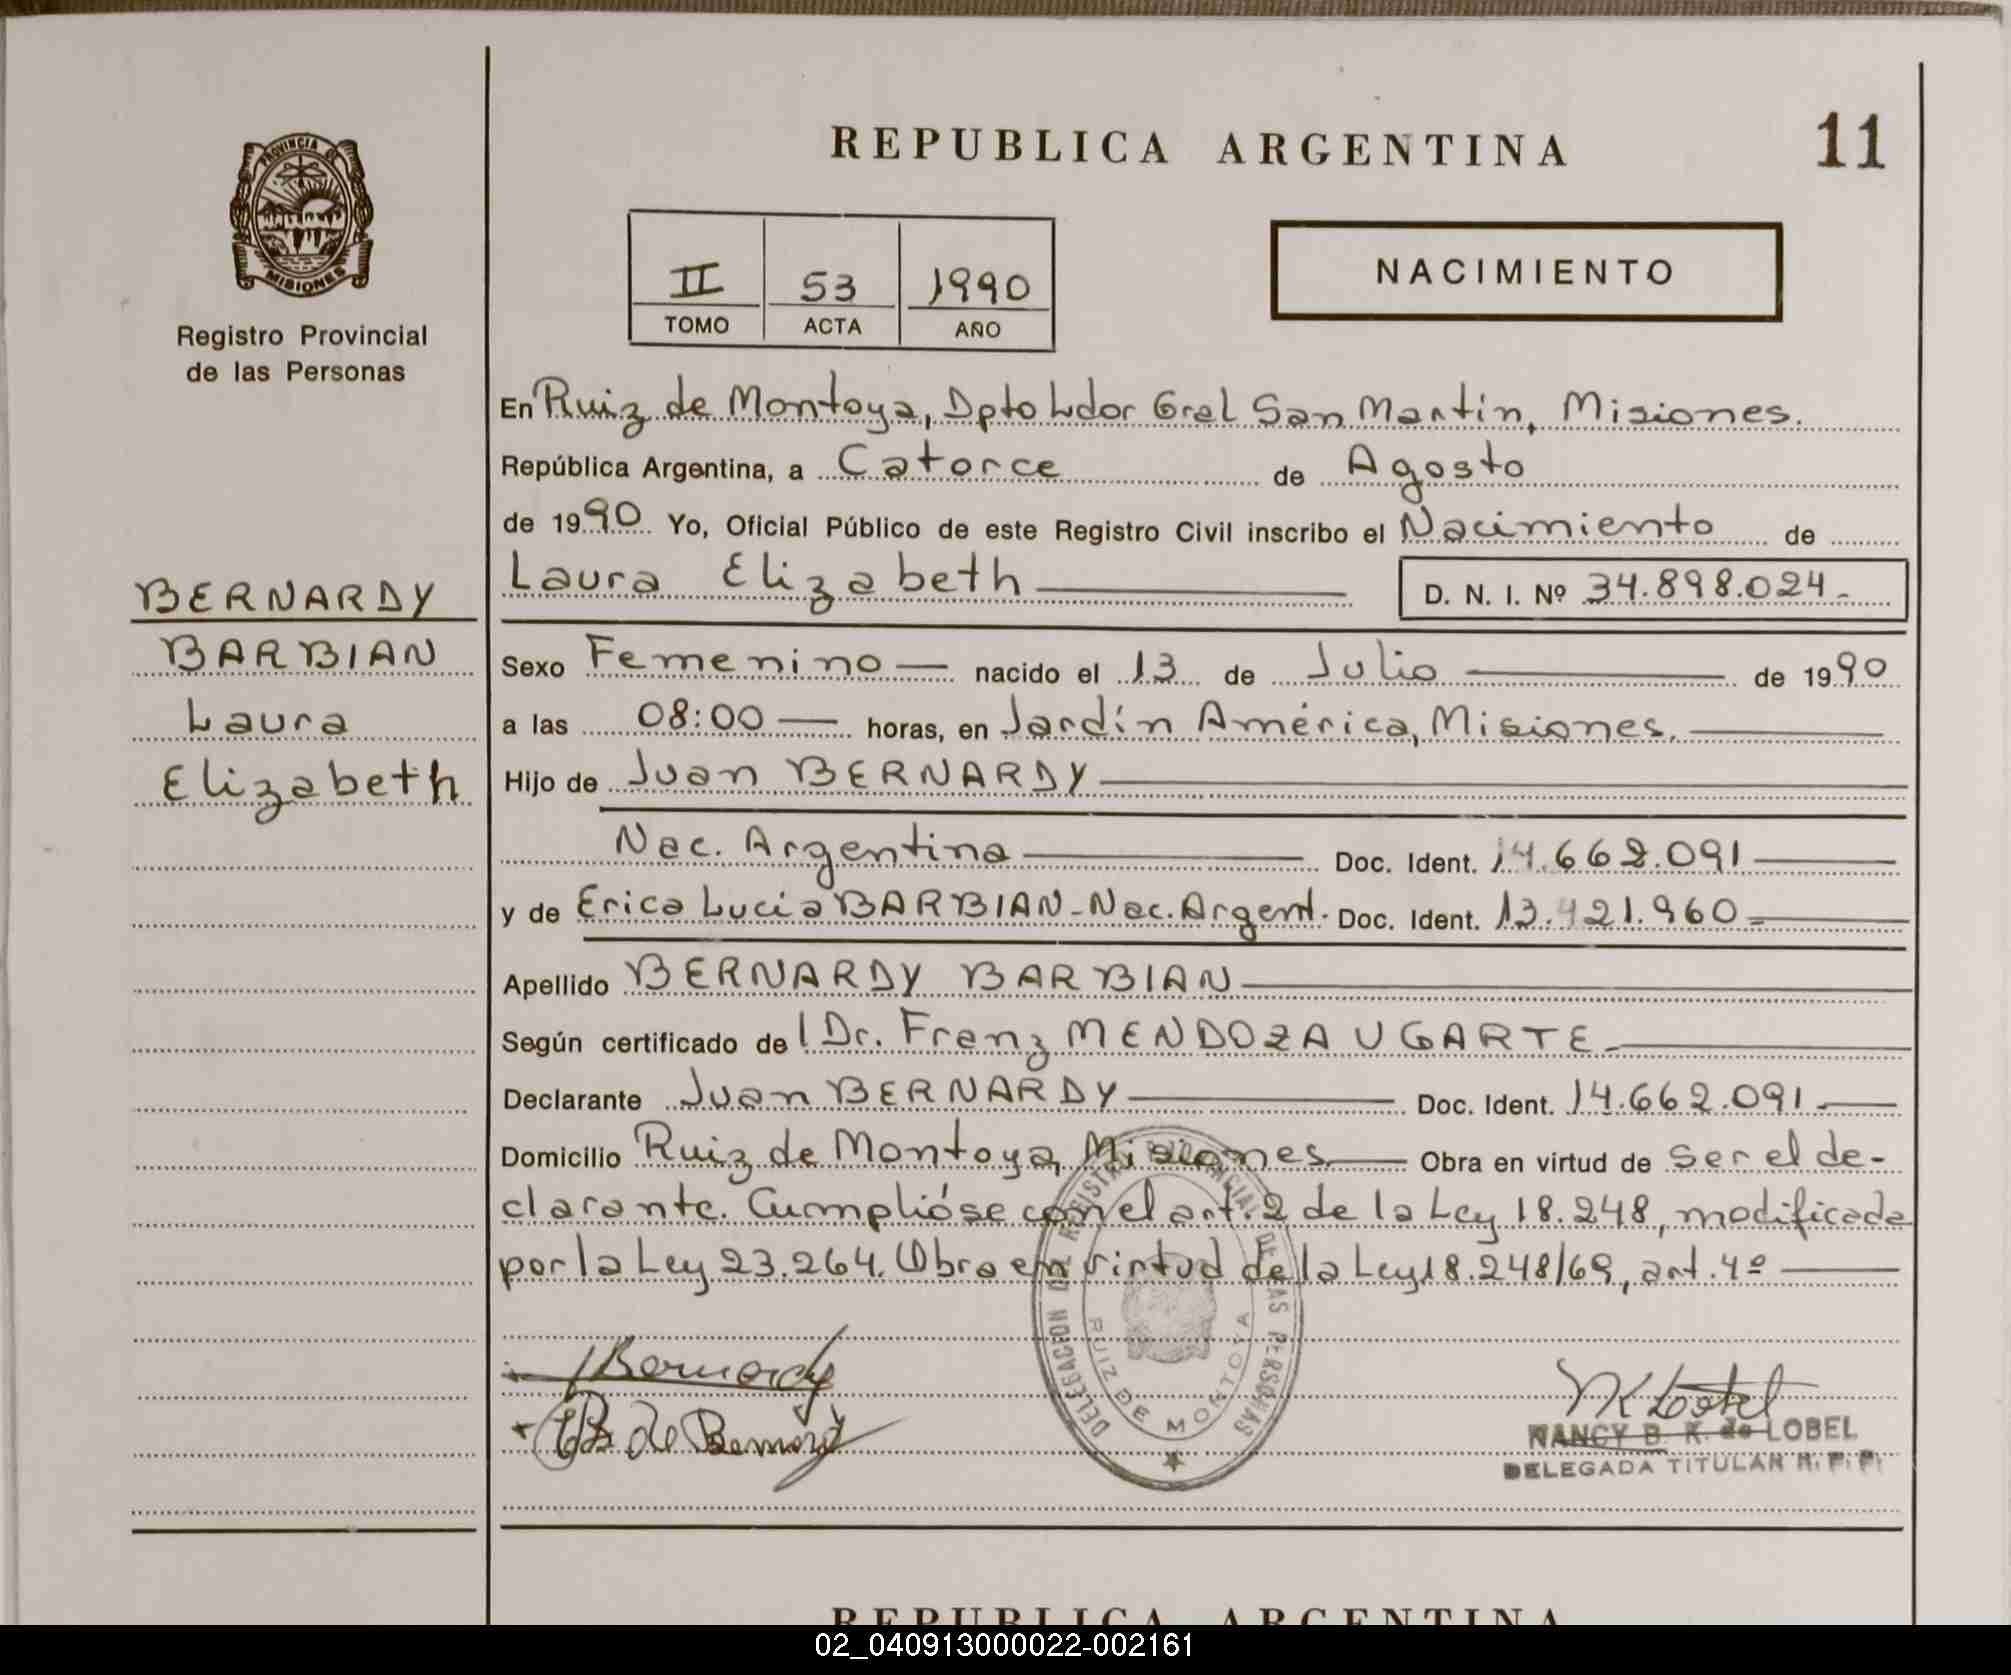 REPUBLICA ARGENTINA
11
PROVINCIA DE
MISIONES
Registro Provincial
de las Personas
II 53 1990
TOMO ACTA AÑO
NACIMIENTO
En Ruiz de Montoya, Dpto Ldor Gral San Martín, Misiones.
República Argentina, a Catorce de Agosto
de 1990 Yo, Oficial Público de este Registro Civil inscribo el Nacimiento de
Laura Elizabeth D. N. I. Nº 34.898.024-
BERNARDY
BARBIAN
Laura
Elizabeth
Sexo Femenino nacido el 13 de Julio de 1990
a las 08:00 horas, en Jardín América, Misiones.
Hijo de Juan BERNARDY
Nac. Argentina Doc. Ident. 14.662.091
y de Erica Lucia BARBIAN-Nac. Argent. Doc. Ident. 13.421.960
Apellido BERNARDY BARBIAN
Según certificado de l Dr. Franz MENDOZA UGARTE
Declarante Juan BERNARDY Doc. Ident. 14.662.091
Domicilio Ruiz de Montoya, Misiones Obra en virtud de ser el de-
clarante. Cumplióse con el art. 2 de la Ley 18.248, modificada
por la Ley 23.264. Obra en virtud de la Ley 18.248/69, art. 4º
JBernardy
de Bernardy
DELEGACION DEL REGISTRO PROVINCIAL DE LAS PERSONAS
RUIZ DE MONTOYA
NANCY B. K. de LOBEL
DELEGADA TITULAR R. P. P.
REPUBLICA ARGENTINA
02_040913000022-002161